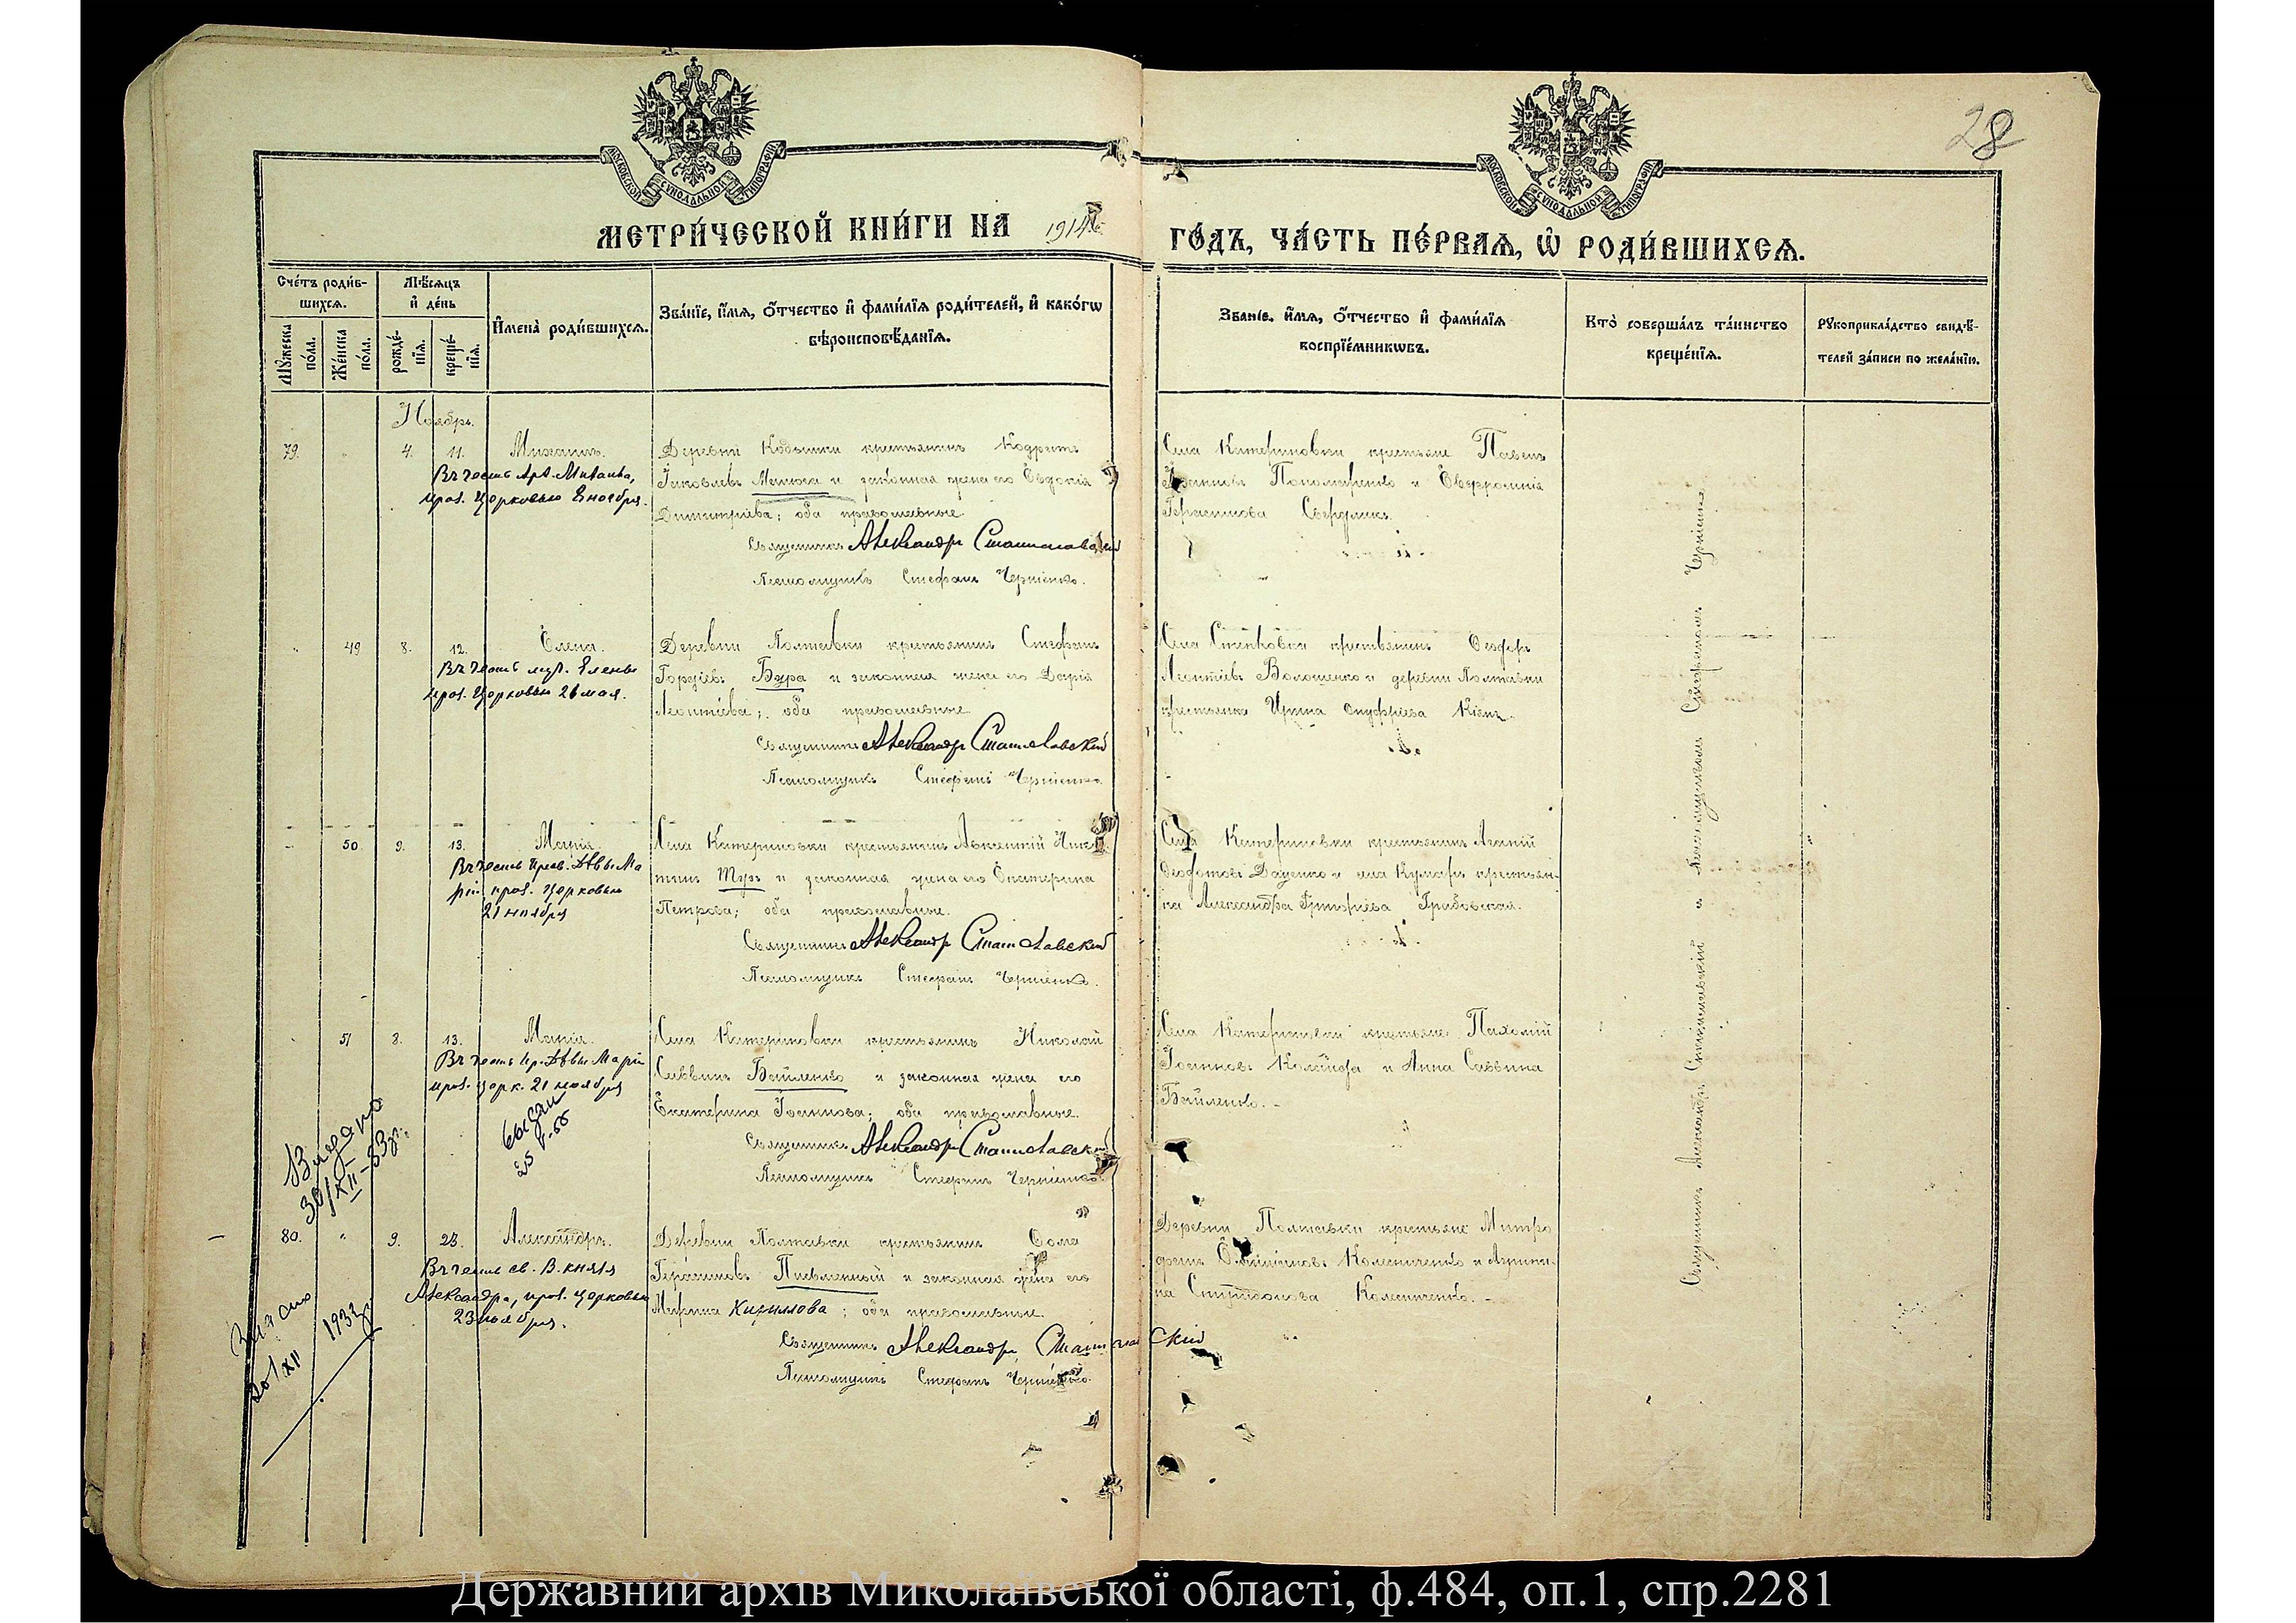 28
МОСКОВСКОЙ СѴНОДАЛЬНОЙ ТИПОГРАФІИ
МОСКОВСКОЙ СѴНОДАЛЬНОЙ ТИПОГРАФІИ
МЕТРИ́ЧЕСКОЙ КНИ́ГИ НА 1914 ГО́ДЪ, ЧА́СТЬ ПЕ́РВАѦ, Ѡ҆ РОДИ́ВШИХСѦ.
Сче́тъ роди́в-
шихсѧ.
Мѣ́сѧцъ
и҆ де́нь
Мꙋ́жеска
по́ла.
Же́нска
по́ла.
рожде́-
нїѧ.
креще́-
нїѧ.
И҆мена̀ роди́вшихсѧ.
Зва́нїе, и҆́мѧ, ѻ҆́тчество и҆ фами́лїѧ роди́телей, и҆ како́гѡ
вѣроисповѣ́данїѧ.
Зва́нїе, и҆́мѧ, ѻ҆́тчество и҆ фами́лїѧ
воспрїе́мникѡвъ.
Кто̀ соверша́лъ та́инство
креще́нїѧ.
Рꙋкоприкла́дство свидѣ́-
телей за́писи по жела́нїю.
Ноябрь.
79. 4. 11. Михаилъ.
Въ честь Арх. Михаила,
праз. Церковью 8 ноября.
Деревни Кодымки крестьянинъ Кодратъ
Іаковлевъ и законная жена его Евдокія
Димитріева; оба православные.
Священникъ Александръ Станиславскій
Псаломщикъ Стефанъ Черненко.
Села Катериновки крестьяне Павелъ
Іоанновъ Пономаренко и Евфросинія
Герасимова Свердликъ.
49 8. 12. Елена.
Въ честь муч. Елены
праз. Церковью 21 мая.
Деревни Полтавки крестьянинъ Стефанъ
Гордіевъ Бура и законная жена его Дарія
Леонтіева; оба православные
Священникъ Александръ Станиславскій
Псаломщикъ Стефанъ Черненко
Села Степковки крестьянинъ Ѳеодоръ
Леонтіевъ Волошенко и деревни Полтавки
крестьянка Ирина Онуфріева Кіянъ.
50 9. 13. Марія.
Въ честь Прес. Дѣвы Ма
ріи праз. Церковью
21 ноября
Села Катериновки крестьянинъ Авксентій Ники
тинъ Туръ и законная жена его Екатерина
Петрова; оба православные.
Священникъ Александръ Станиславскій
Псаломщикъ Стефанъ Черненко.
Села Катериновки крестьянинъ Агапій
Ѳеодотовъ Даценко и села Кумаръ крестьян-
ка Александра Григорьева Грибовская.
51 8. 13. Марія.
Въ честь Пр. Дѣвы Маріи
праз. церк. 21 ноября
Села Катериновки крестьянинъ Николай
Саввинъ Байленко и законная жена его
Екатерина Іоаннова; оба православные.
Священникъ Александръ Станиславскій
Псаломщикъ Стефанъ Черненко
Села Катериновки крестьяне: Пахомій
Іоанновъ и Анна Саввина
Байленко.
Видано
30/XII-33г.
80. 9. 23. Александръ.
Въ честь св. В. князя
Александра, праз. Церковью
23 ноября.
Деревни Полтавки крестьянинъ Ѳома
Герасимовъ Письменный и законная жена его
Марина Кириллова; оба православные.
Священникъ Александръ Станиславскій
Псаломщикъ Стефанъ Черненко
Деревни Полтавки крестьяне Митро
фанъ Колесниченко и Агрипи-
на Спиридонова Колесниченко.
XII 1933г.
Священникъ Александръ Станиславскій и псаломщикомъ Стефаномъ Черненко
Державний архів Миколаївської області, ф.484, оп.1, спр.2281